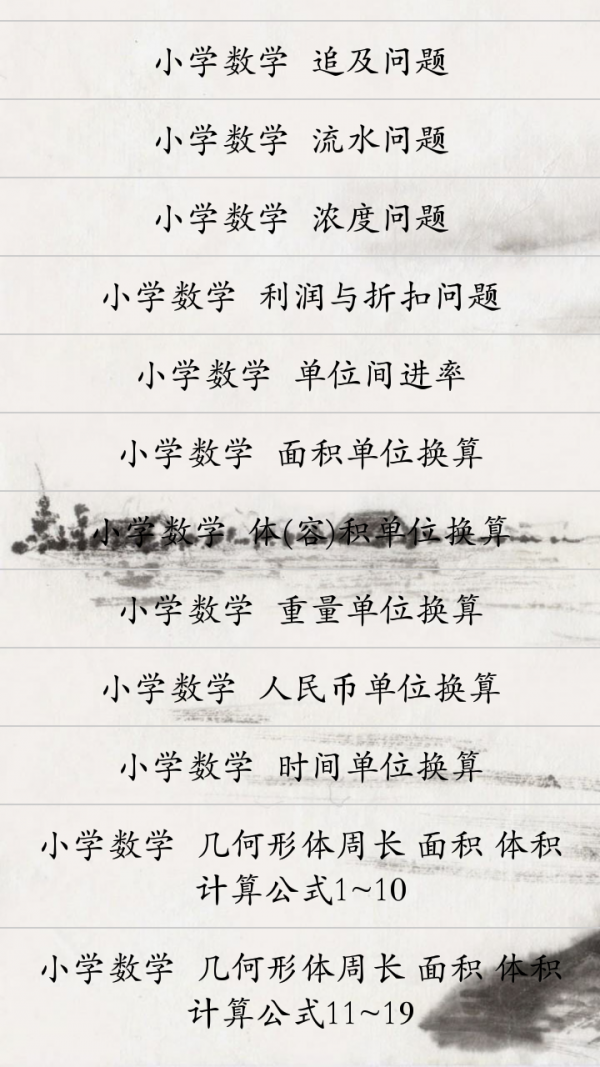 小学数学 追及问题
小学数学 流水问题
小学数学 浓度问题
小学数学 利润与折扣问题
小学数学 单位间进率
小学数学 面积单位换算
小学数学 体(容)积单位换算
小学数学 重量单位换算
小学数学 人民币单位换算
小学数学 时间单位换算
小学数学 几何形体周长 面积 体积
计算公式1~10
小学数学 几何形体周长 面积 体积
计算公式11~19